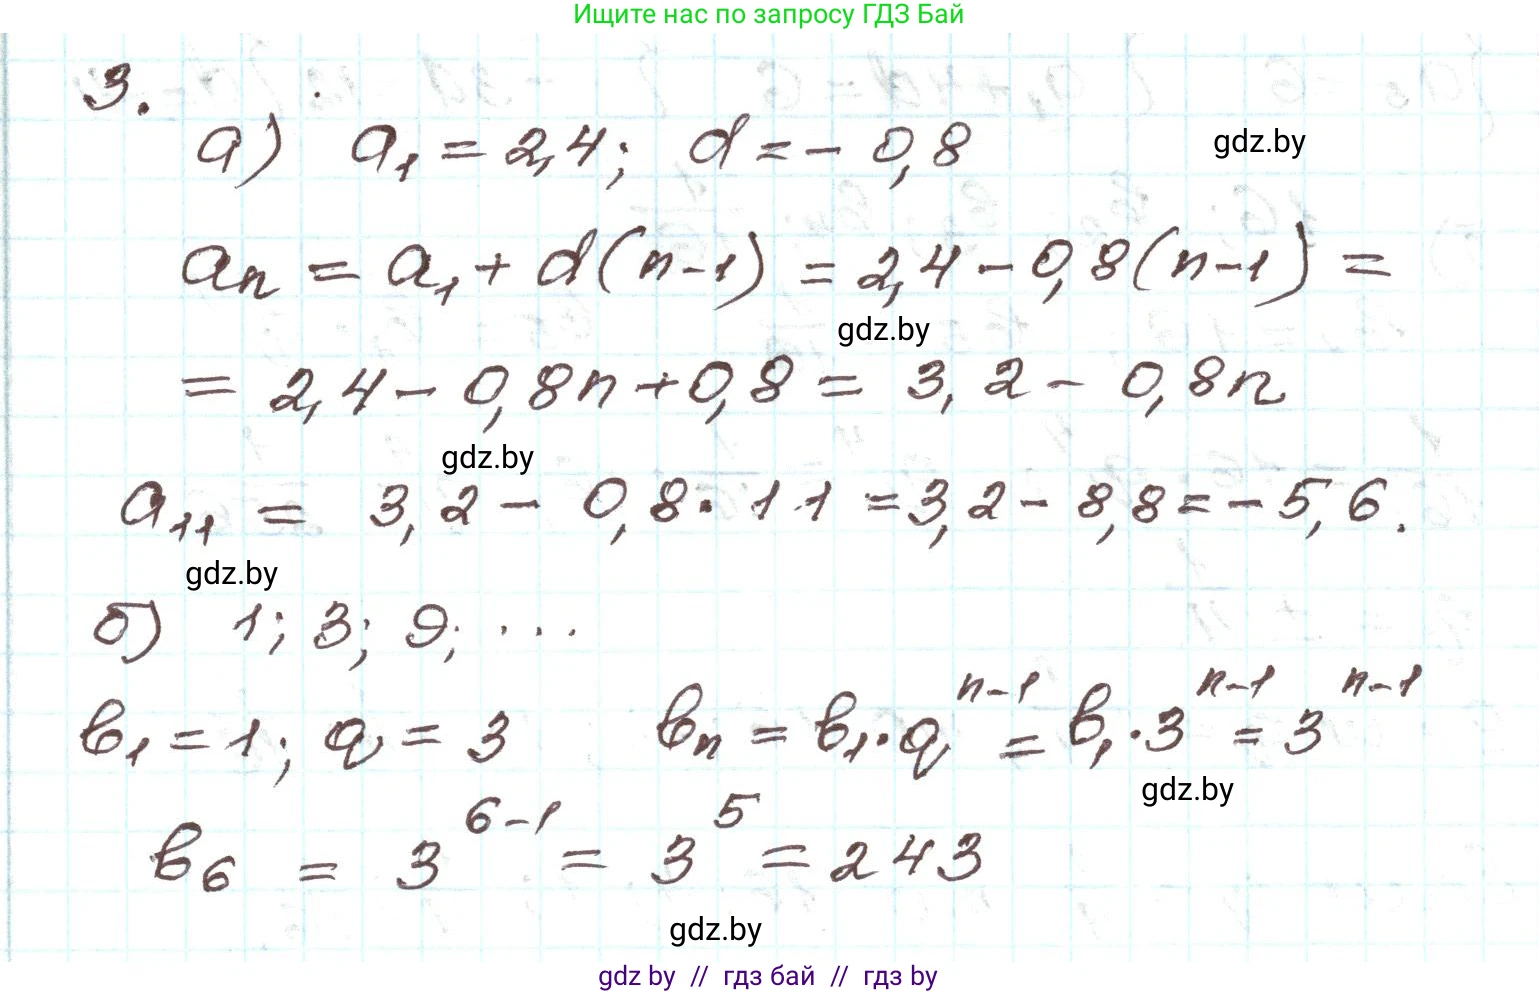 Ищите нас по запросу ГДЗ Бай
3.
а) a₁ = 2,4; d = - 0,8
gdz.by
aₙ = a₁ + d(n-1) = 2,4 - 0,8(n-1) =
gdz.by
= 2,4 - 0,8n + 0,8 = 3,2 - 0,8n
gdz.by
a₁₁ = 3,2 - 0,8 · 11 = 3,2 - 8,8 = - 5,6.
gdz.by
б) 1; 3; 9; ...
b₁ = 1; q = 3 bₙ = b₁ · qⁿ⁻¹ = b₁ · 3ⁿ⁻¹ = 3ⁿ⁻¹
gdz.by
b₆ = 3⁶⁻¹ = 3⁵ = 243
gdz.by
gdz by // гдз бай // гдз by